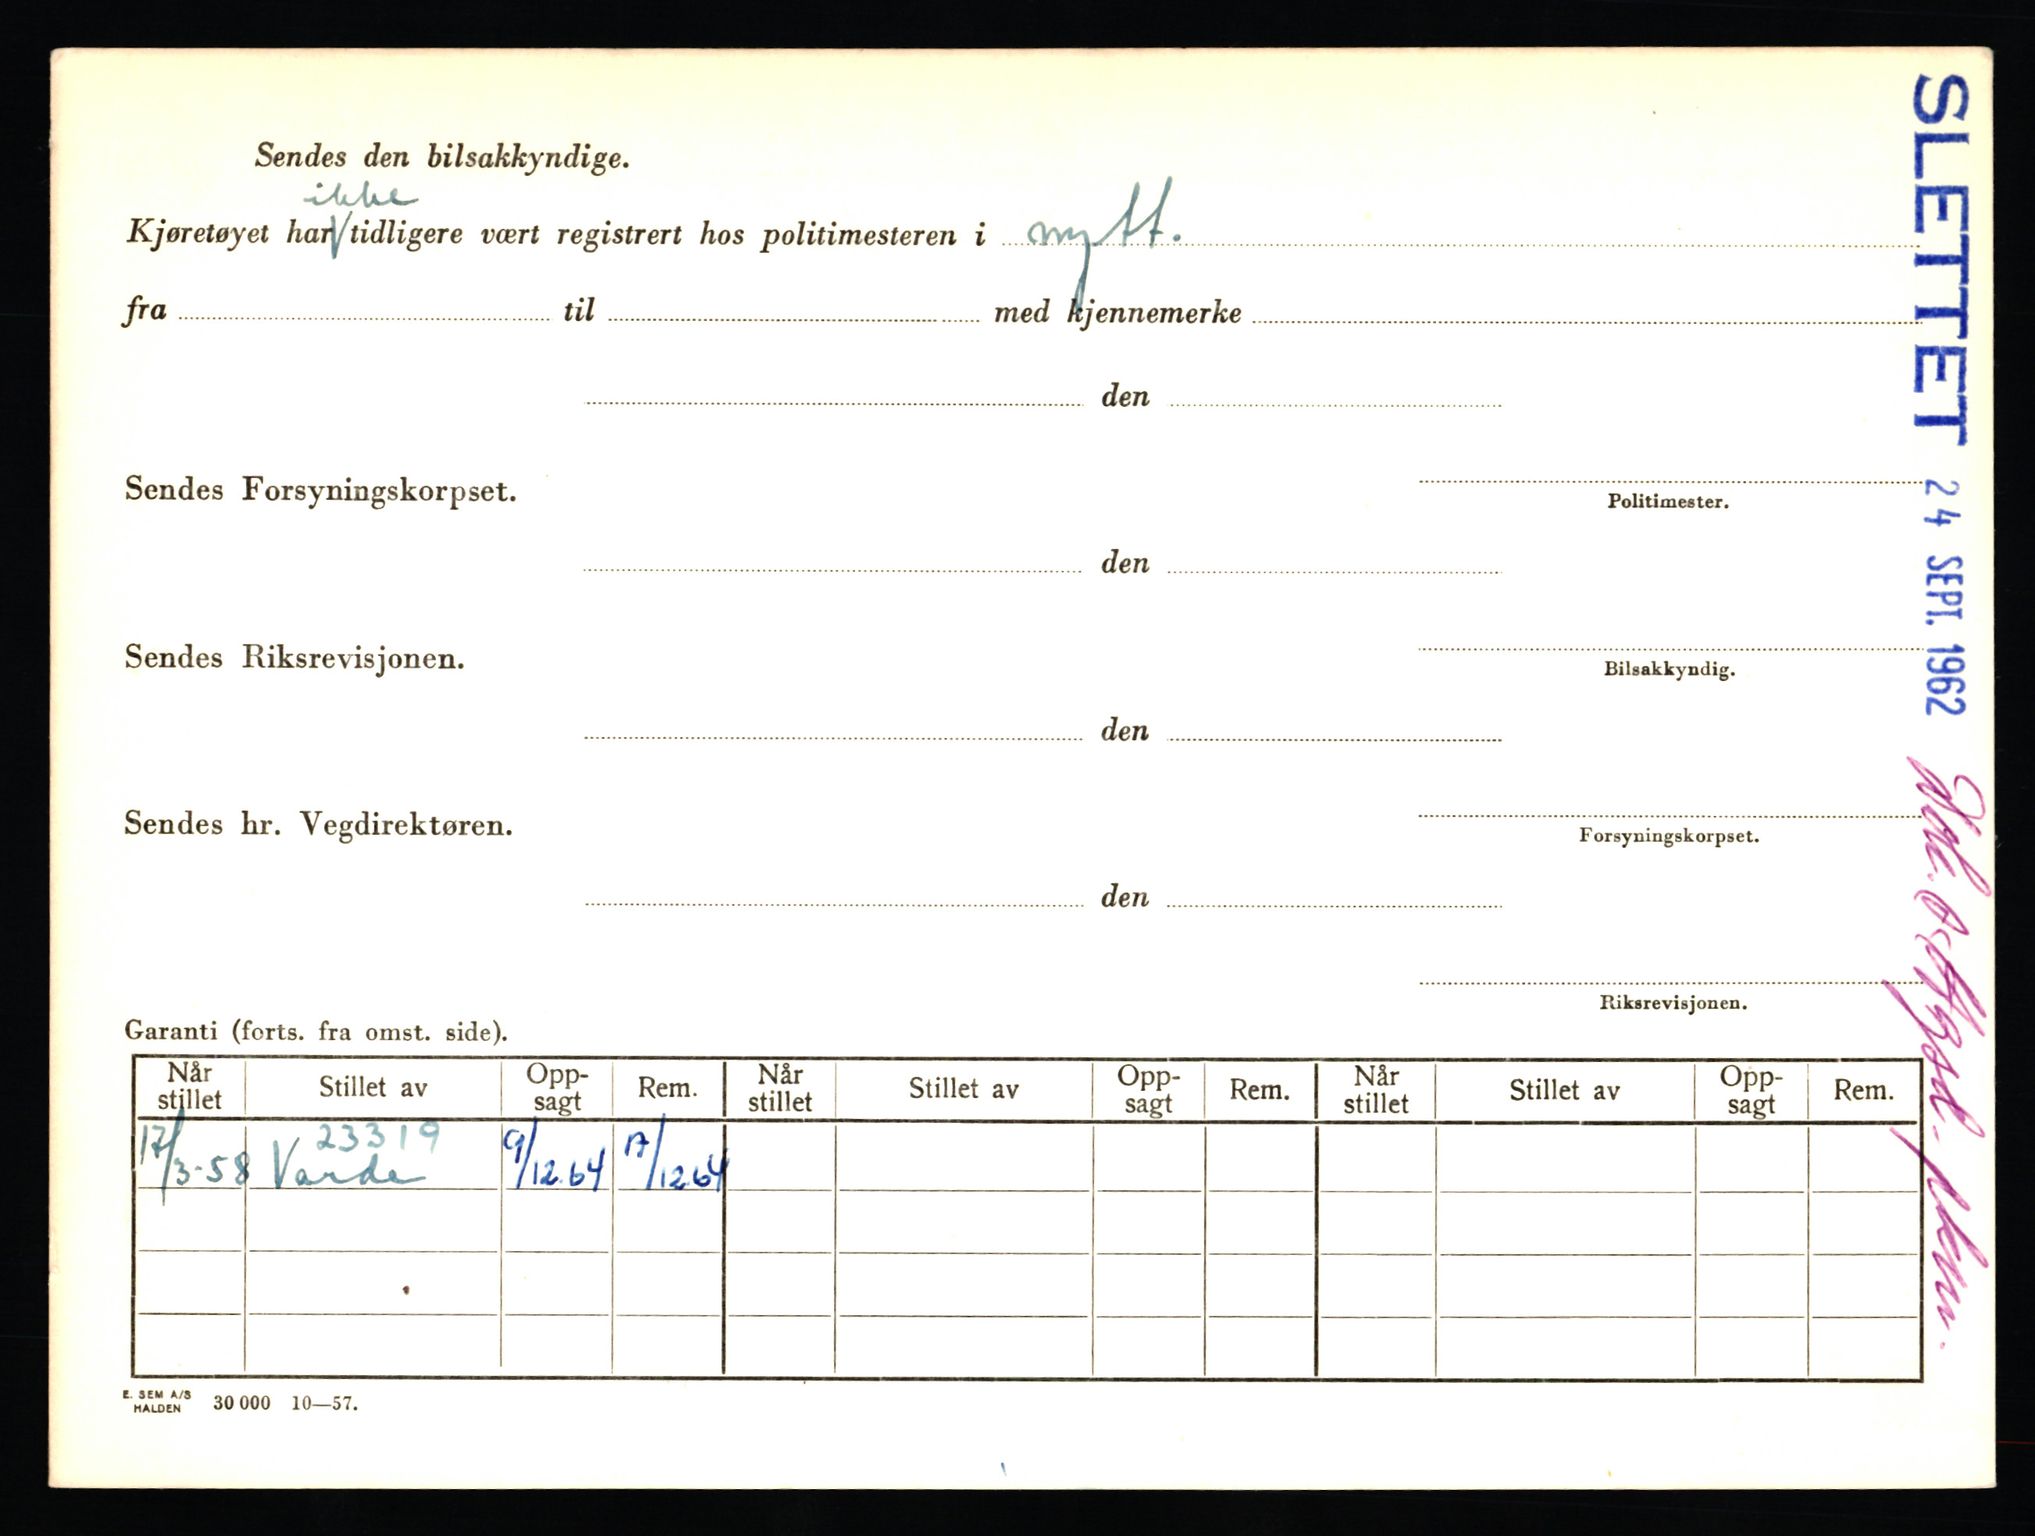 Sendes den bilsakkyndige.
ikke
Kjøretøyet har √ tidligere vært registrert hos politimesteren i nytt.
fra til med kjennemerke
den
Sendes Forsyningskorpset.
Politimester.
den
Sendes Riksrevisjonen.
Bilsakkyndig.
den
Sendes hr. Vegdirektøren.
Forsyningskorpset.
den
Riksrevisjonen.
Garanti (forts. fra omst. side).
Når stillet Stillet av Opp-sagt Rem. Når stillet Stillet av Opp-sagt Rem. Når stillet Stillet av Opp-sagt Rem.
23319
17/3-58 Varde 9/12.64 17/12.64
E. SEM A/S
HALDEN 30 000 10—57.
SLETTET 24 SEPT. 1962